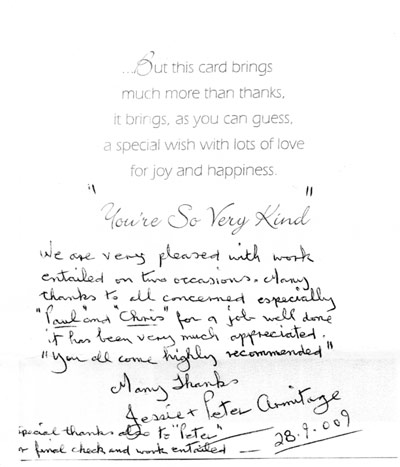 ...But this card brings
much more than thanks,
it brings, as you can guess,
a special wish with lots of love
for joy and happiness.
"You're So Very Kind"
We are very pleased with work
entailed on two occasions. Many
thanks to all concerned especially
"Paul" and "Chris" for a job well done
it has been very much appreciated.
"You all come highly recommended"
Many Thanks
Jessie + Peter Armitage
special thanks also to "Peter"
final check and work entailed — 28.9.009